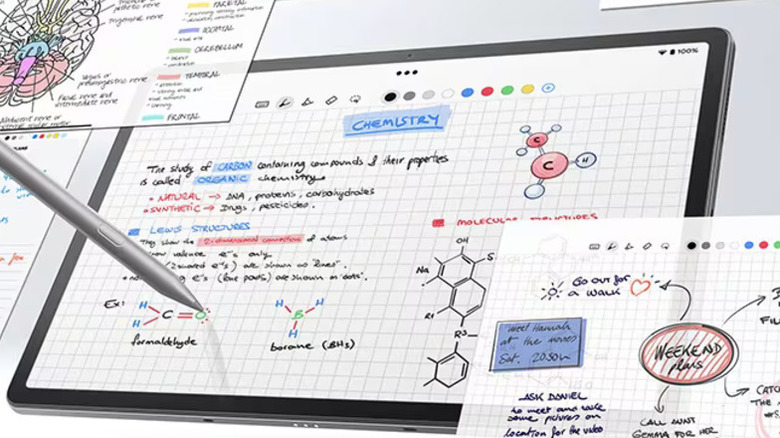 PARIETAL
OCCIPITAL
CEREBELLUM
TEMPORAL
FRONTAL
100%
CHEMISTRY
The study of CARBON containing compounds & their properties
is called ORGANIC chemistry.
• NATURAL → DNA, proteins, carbohydrates
• SYNTHETIC → Drugs, pesticides.
LEWIS STRUCTURES
They show the 2-dimensional connections of atoms
valence e⁻s only.
(shared e⁻s) are shown as "lines".
e⁻s (lone pairs) are shown as "dots".
Ex:
H
H
C
O
formaldehyde
H
H
B
H
borane (BH₃)
C
C
H
MOLECULAR STRUCTURES
OH
Na
S
R1
R3
GO OUT FOR
A WALK
meet Hannah
at the movies
Sat. 20:30h
WEEKEND
plans
ASK DANIEL
to meet and take
some pictures on
location for the video
CALL AUNT
GEMMA FOR HER